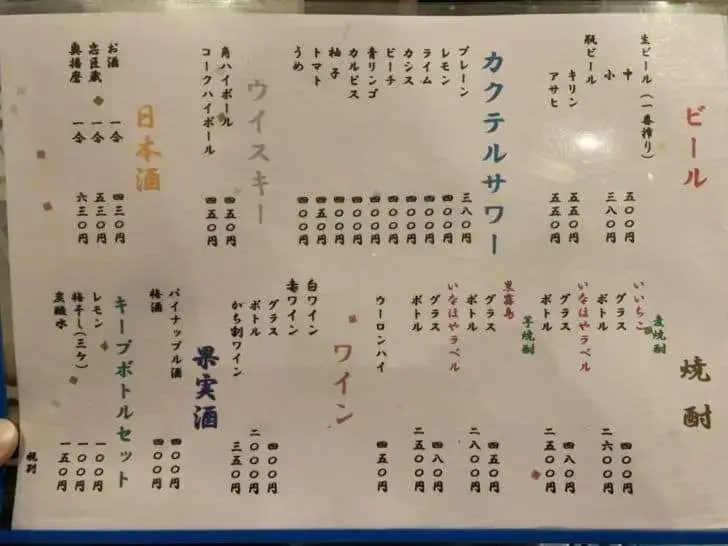 ビール
生ビール(一番搾り)
中 五〇〇円
小 三八〇円
瓶ビール
キリン 五五〇円
アサヒ 五五〇円
カクテルサワー
プレーン 三八〇円
レモン 四〇〇円
ライム 四〇〇円
カシス 四〇〇円
ピーチ 四〇〇円
青リンゴ 四〇〇円
カルピス 四〇〇円
柚子 四〇〇円
トマト 四五〇円
うめ 四〇〇円
ウイスキー
角ハイボール 四五〇円
コークハイボール 四五〇円
日本酒
お酒 一合 四三〇円
忠臣蔵 一合 五三〇円
奥播磨 一合 六三〇円
焼酎
麦焼酎
いいちこ
グラス 四〇〇円
ボトル 二六〇〇円
いなはやラベル
グラス 四八〇円
ボトル 二五〇〇円
芋焼酎
黒霧島
グラス 四五〇円
ボトル 二八〇〇円
いなはやラベル
グラス 四八〇円
ボトル 二五〇〇円
ウーロンハイ 四五〇円
ワイン
白ワイン
赤ワイン
グラス 四〇〇円
ボトル 二〇〇〇円
かち割ワイン 三五〇円
果実酒
パイナップル酒 四〇〇円
梅酒 四〇〇円
キープボトルセット
レモン 一〇〇円
梅干し(三ケ) 一〇〇円
炭酸水 一五〇円
税別